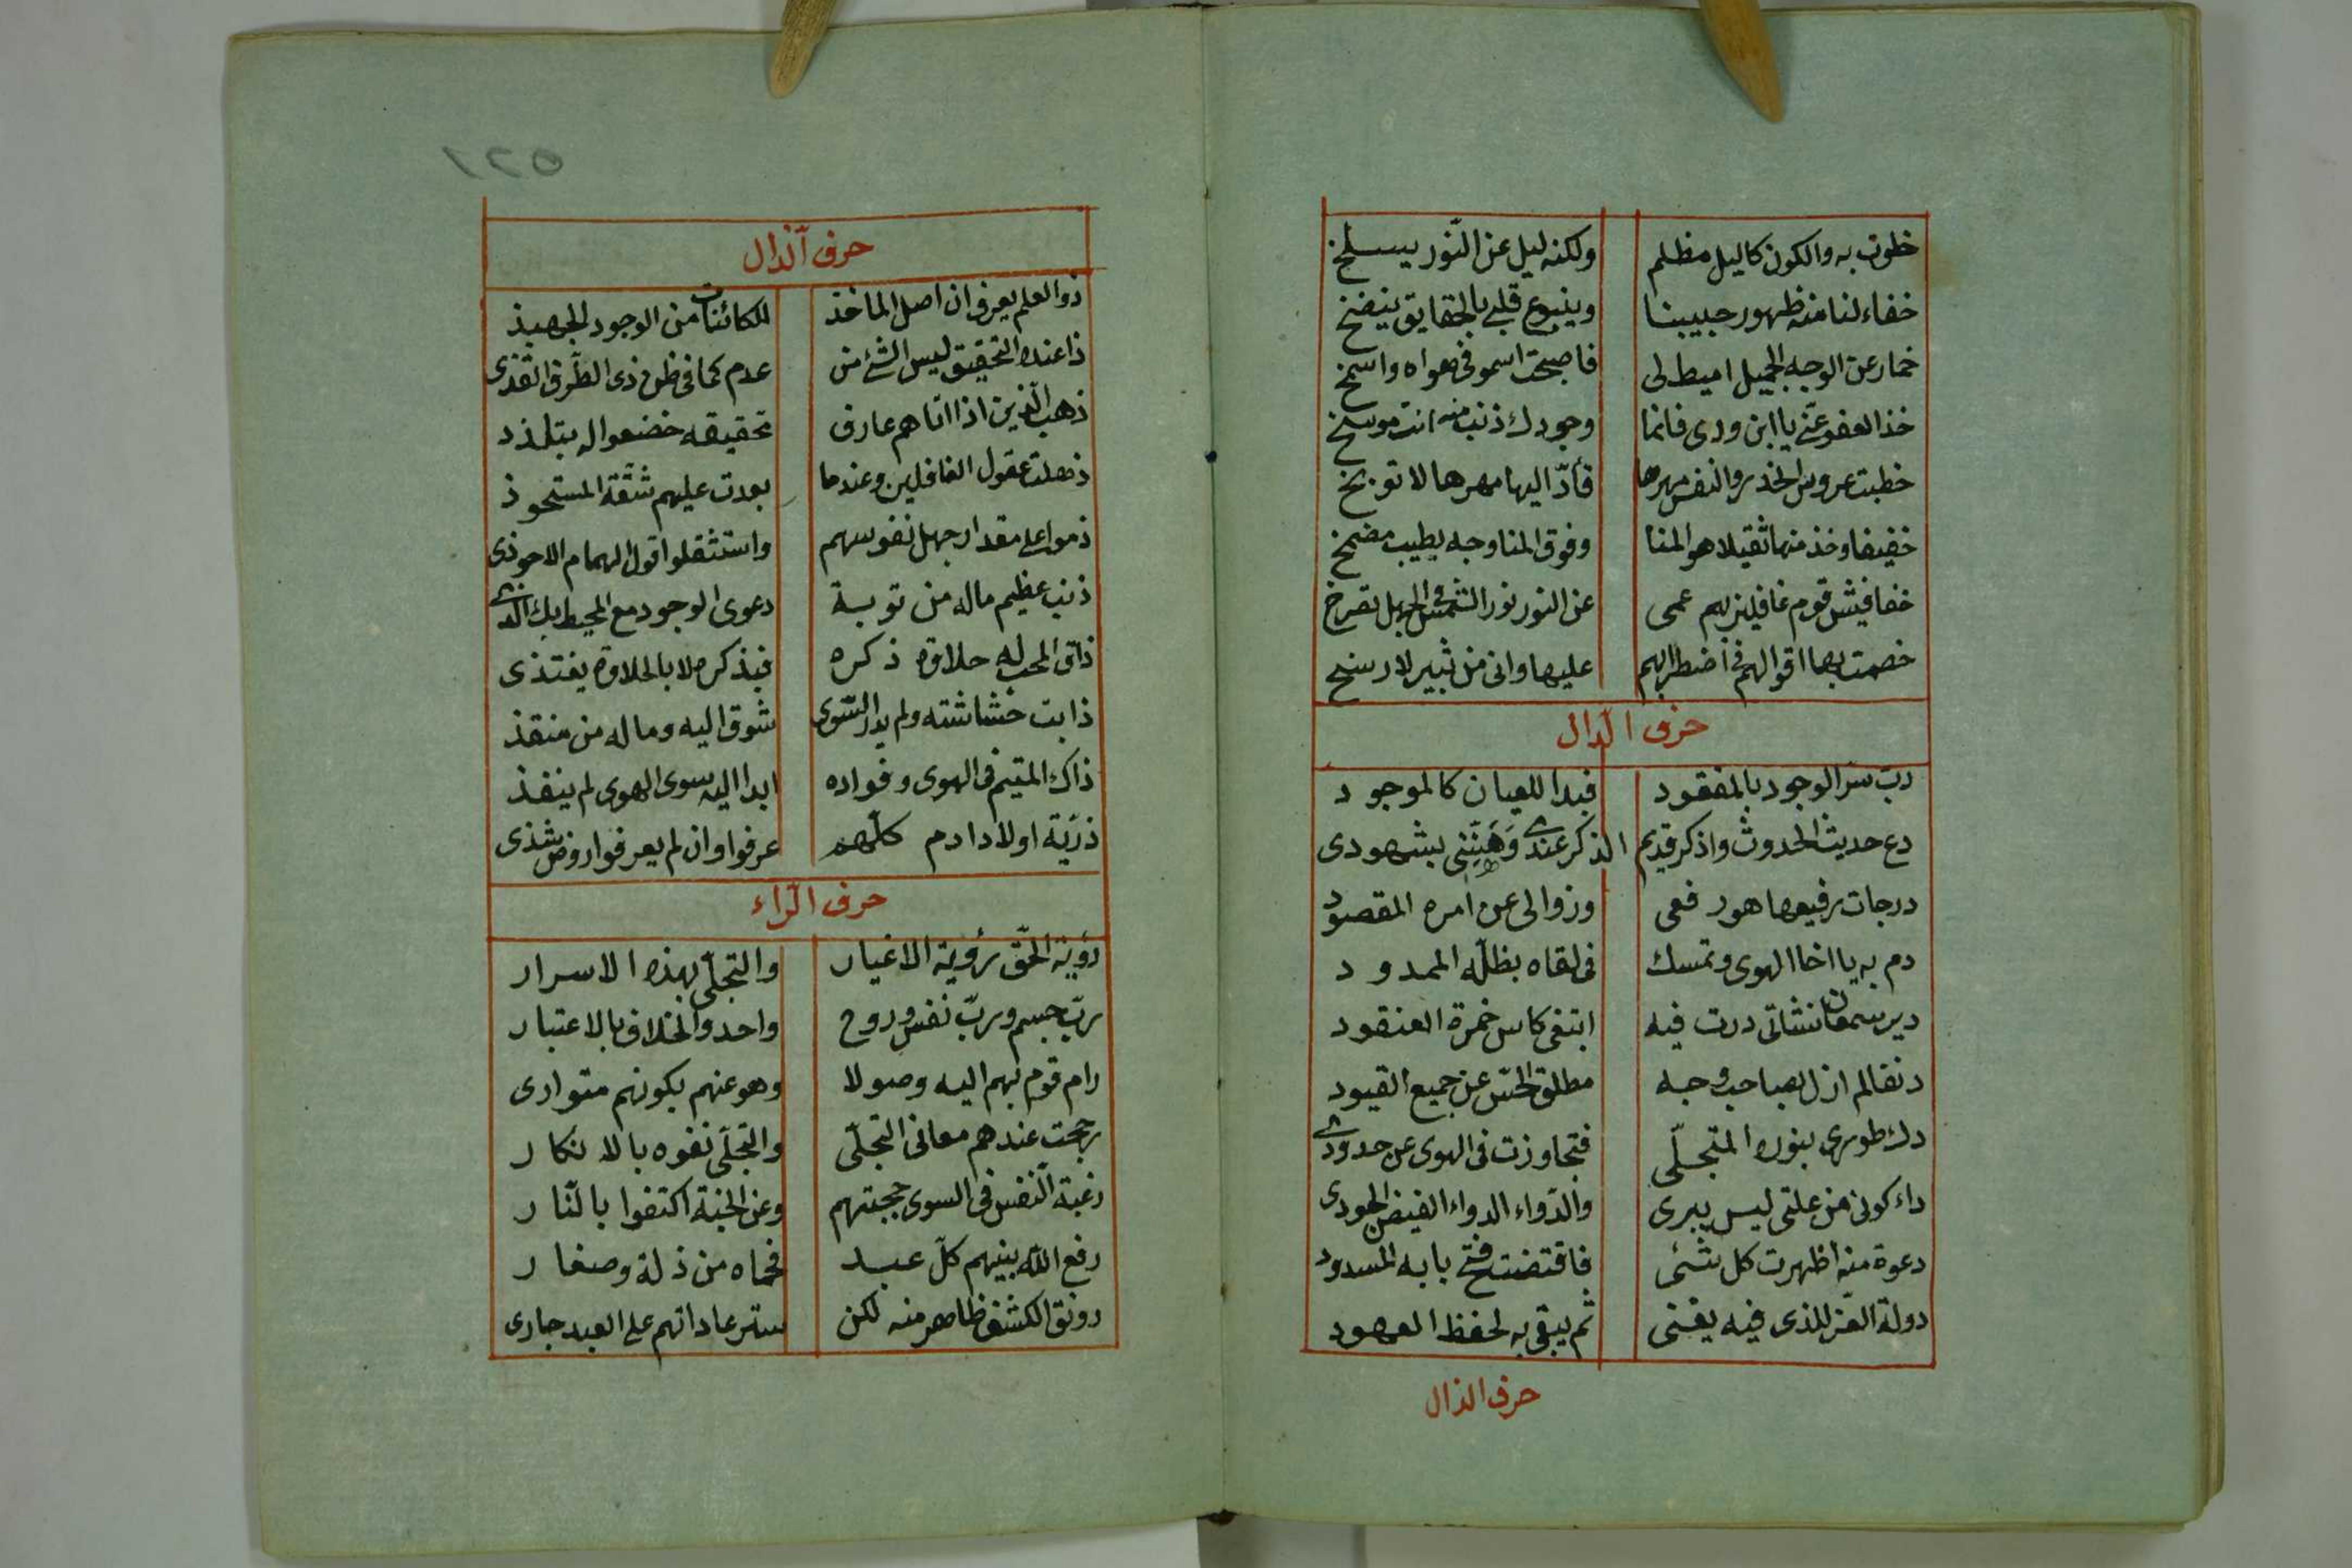 خلوت به والكون كاليل مظلم ولكنه ليل عن النّور يسلخ
خفاء لنا منه ظهور حبيبنا وينبوع قلبى بالحقايق ينضخ
خمار عن الوجه الجميل اميط لى فاصبحت اسمو فى هواه واشمخ
خذ العفو عنّى يا ابن ودى فانما وجودك ذنب منه انت موسخ
خطبت عروس الخدر والنفس مهرها فأدّ اليها مهرها لا توبخ
خفيفا وخذ منها ثقيلا هو المنا وفوق المنا وجه بطيب مضمخ
خفافيش قوم غافلين بهم عمى عن النور نور الشمس والجهل تصرخ
خصمت بها اقوالهم فى اضطرابهم عليها وانى من ثبير لارسخ
حرف الدّال
ربّ سرّ الوجود بالمفقود فبدا للعيان كالموجود
دع حديث الحدوث واذكر قديم الذكر عندى وَهَنِّنِى بشهودى
درجات رفيعها هو رفعى وزوالى عن امره المقصود
دم به يا اخا الهوى وتمسك فى لقاه بظلّه الممدود
دير سمعان نشاتى درت فيه ابتغى كاس خمرة العنقود
دنفا لم ازل بصاحب وجه مطلق الحسّ عن جميع القيود
دك طورى بنوره المتجلّى فتجاوزت فى الهوى عن حدودى
داء كونى من علتى ليس يبرى والدّواء الدواء الفيض الجودى
دعوة منه اظهرت كل شئى فاقتضت فتح بابه المسدود
دولة العزّ للذى فيه يفنى ثم يبقى به لحفظ العهود
حرف الذال
٥٢١
حرف الذّال
ذو العلم يعرف ان اصل الماخذ للكائنات من الوجود الجهبذ
ذا عنده التحقيق ليس الشئ من عدم كما فى ظن ذى الطّرف القذى
ذهب الّذين اذا اتاهم عارف تحقيقه خضعوا له بتلذذ
ذهلت عقول الغافلين وعندما بعدت عليهم شقّة المستحوذ
ذموا على مقدار جهل نفوسهم واستثقلوا قول الهمام الاحوذى
ذنب عظيم ماله من توبة دعوى الوجود مع المحيط بك الّذى
ذاق المحب له حلاوة ذكره فبذكره لا بالحلاوة يغتذى
ذابت حشاشته ولم يدر السّوى شوق اليه وما له من منقذ
ذاك المتيم فى الهوى وفواده ابدا اليه سوى الهوى لم ينفذ
ذرّية اولاد ادم كلّهم عرفوا وان لم يعرفوا روض شذى
حرف الرّاء
رؤية الحّق رؤية الاغيار والتجلّى بهذه الاسرار
ربّ جسم وربّ نفس وروح واحد والخلاف بالاعتبار
رام قوم بهم اليه وصولا وهو عنهم بكونهم متوارى
رجحت عندهم معانى التجلّى والتجلّى نفوه بالانكار
رغبة النّفس فى السوى حجبتهم وعن الجنة اكتفوا بالنّار
رفع اللّه بينهم كلّ عبد فحماه من ذلة وصغار
رونق الكشف ظاهر منه لكن ستر عاداتهم على العبد جارى